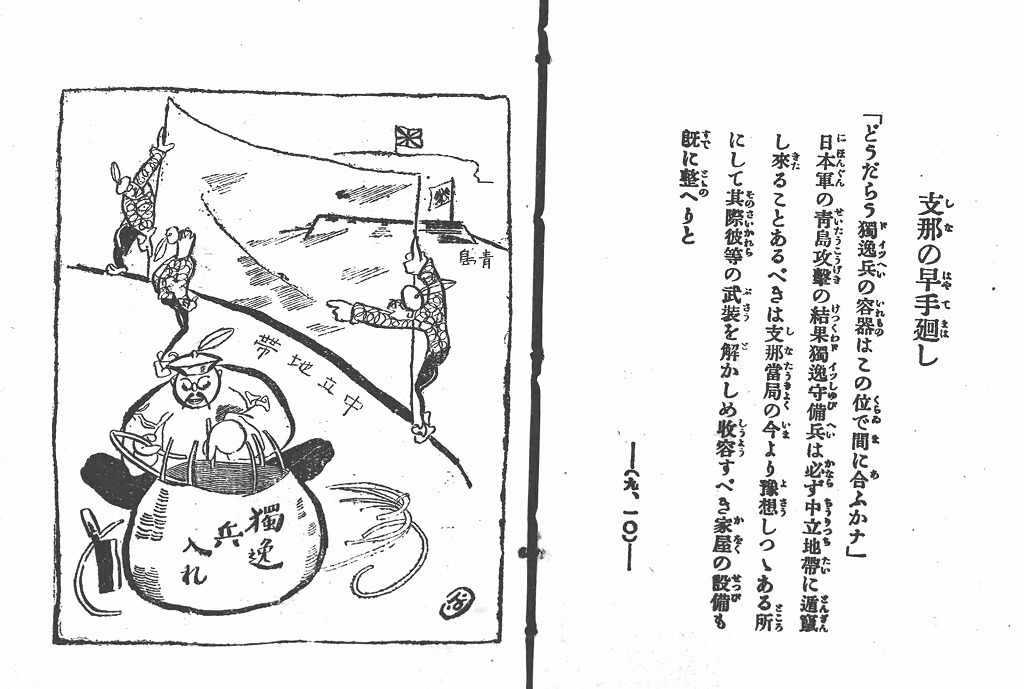 支那の早手廻し
「どうだらう獨逸兵の容器はこの位で間に合ふかナ」
日本軍の靑島攻擊の結果獨逸守備兵は必ず中立地帶に遁竄
し來ることあるべきは支那當局の今より豫想しつゝある所
にして其際彼等の武裝を解かしめ收容すべき家屋の設備も
旣に整へりと
―(九、一〇)―
靑島
中立地帶
獨逸
兵
入れ